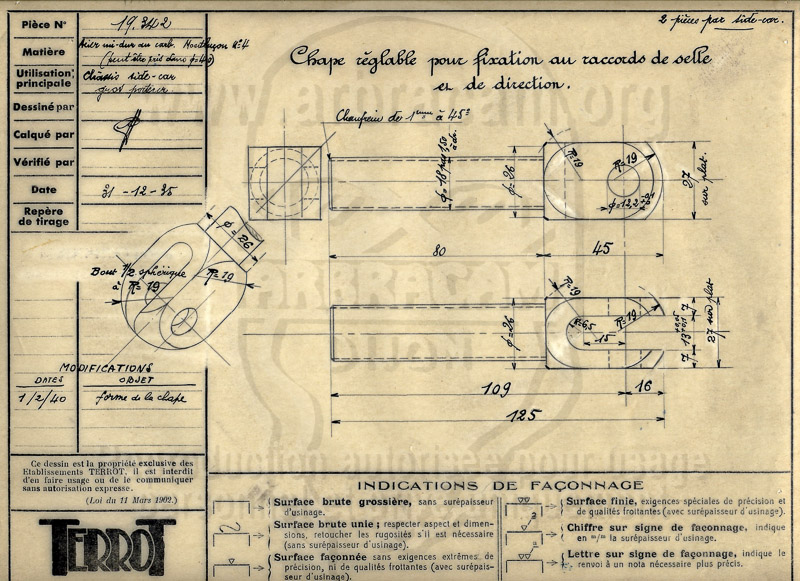 Pièce N° 19.342
2 pièces par side-car.
Matière Acier mi-dur au carb. Montluçon N°4
(peut être pris dans φ=40)
Utilisation principale Châssis side-car
Dessiné par
Calqué par
Vérifié par
Date 31-12-35
Repère de tirage
Chape réglable pour fixation au raccords de selle
et de direction.
Chanfrein de 1mm à 45°
φ=18 pas 150
φ=26
R=19
R=19
φ=12,2
27 sur plat.
80
45
φ=26
Bout 1/2 sphérique
R=19
R=19
φ=26
R=19
r=6,5
R=19
15
7
13
7
27 sur plat
109
16
125
MODIFICATIONS
DATES OBJET
1/2/40 forme de la chape
Ce dessin est la propriété exclusive des
Etablissements TERROT, il est interdit
d'en faire usage ou de le communiquer
sans autorisation expresse.
(Loi du 11 Mars 1902.)
TERROT
INDICATIONS DE FAÇONNAGE
Surface brute grossière, sans surépaisseur
d'usinage.
Surface brute unie; respecter aspect et dimen-
sions, retoucher les rugosités s'il est nécessaire
(sans surépaisseur d'usinage).
Surface façonnée sans exigences extrêmes de
précision, ni de qualités frottantes (avec surépais-
seur d'usinage).
Surface finie, exigences spéciales de précision et
de qualités frottantes (avec surépaisseur d'usinage).
Chiffre sur signe de façonnage, indique
en m/m la surépaisseur d'usinage.
Lettre sur signe de façonnage, indique le
renvoi à un nota nécessaire plus précis.